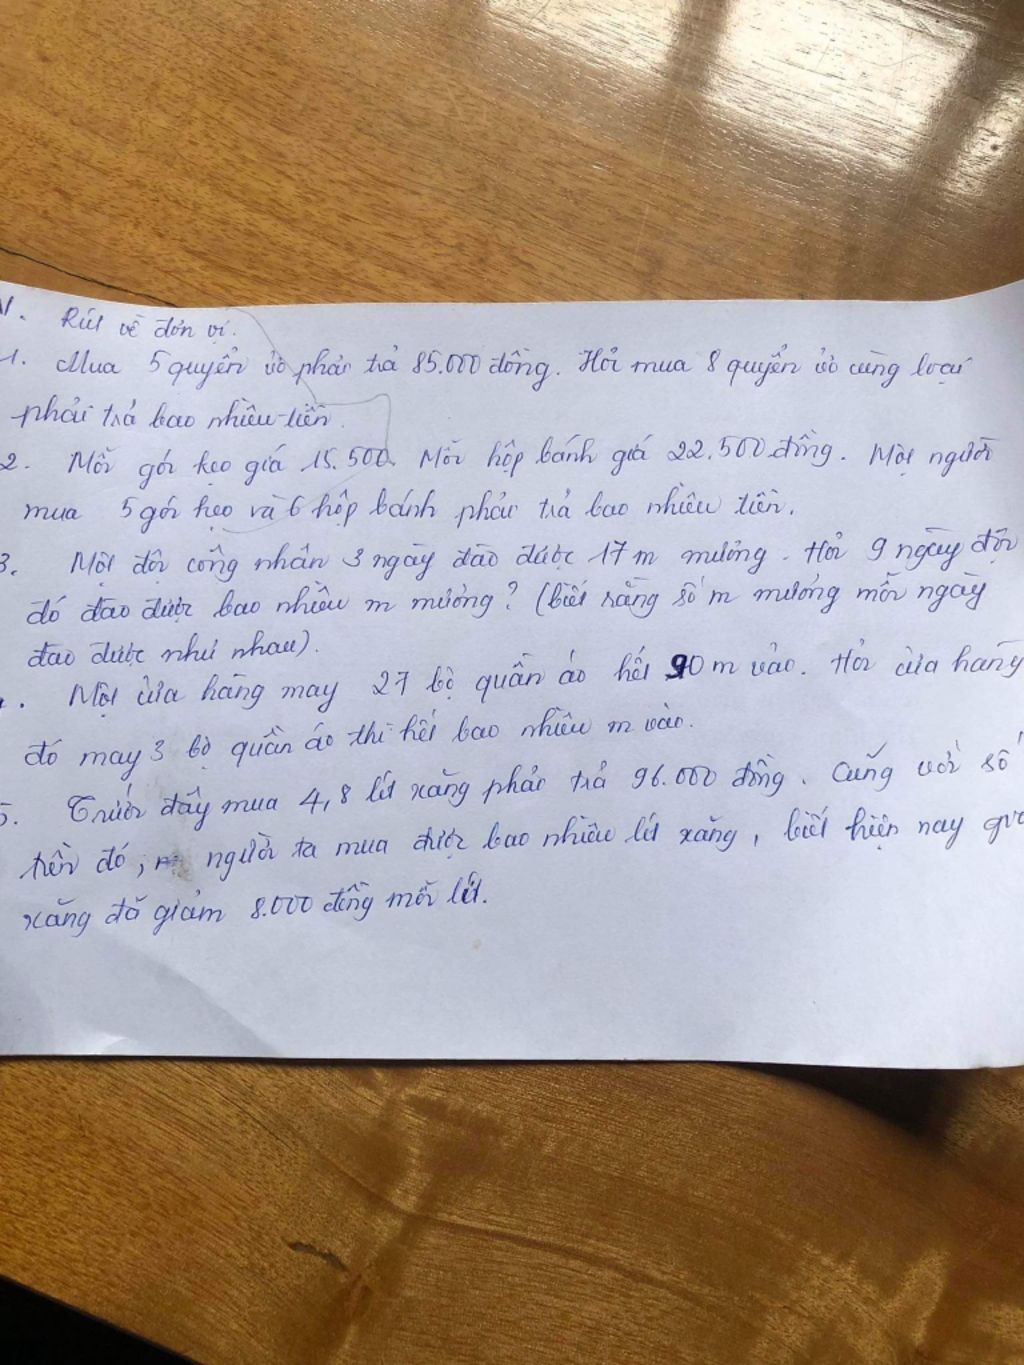 VI. Rút về đơn vị.
1. Mua 5 quyển vở phải trả 85.000 đồng. Hỏi mua 8 quyển vở cùng loại
phải trả bao nhiêu tiền.
2. Mỗi gói kẹo giá 15.500. Mỗi hộp bánh giá 22.500 đồng. Một người
mua 5 gói kẹo và 6 hộp bánh phải trả bao nhiêu tiền.
3. Một đội công nhân 3 ngày đào được 17 m mương. Hỏi 9 ngày đội
đó đào được bao nhiêu m mương? (biết rằng số m mương mỗi ngày
đào được như nhau).
. Một cửa hàng may 27 bộ quần áo hết 90 m vải. Hỏi cửa hàng
đó may 3 bộ quần áo thì hết bao nhiêu m vải.
5. Trước đây mua 4,8 lít xăng phải trả 96.000 đồng. Cũng với số
tiền đó, người ta mua được bao nhiêu lít xăng, biết hiện nay giá
xăng đã giảm 8.000 đồng mỗi lít.